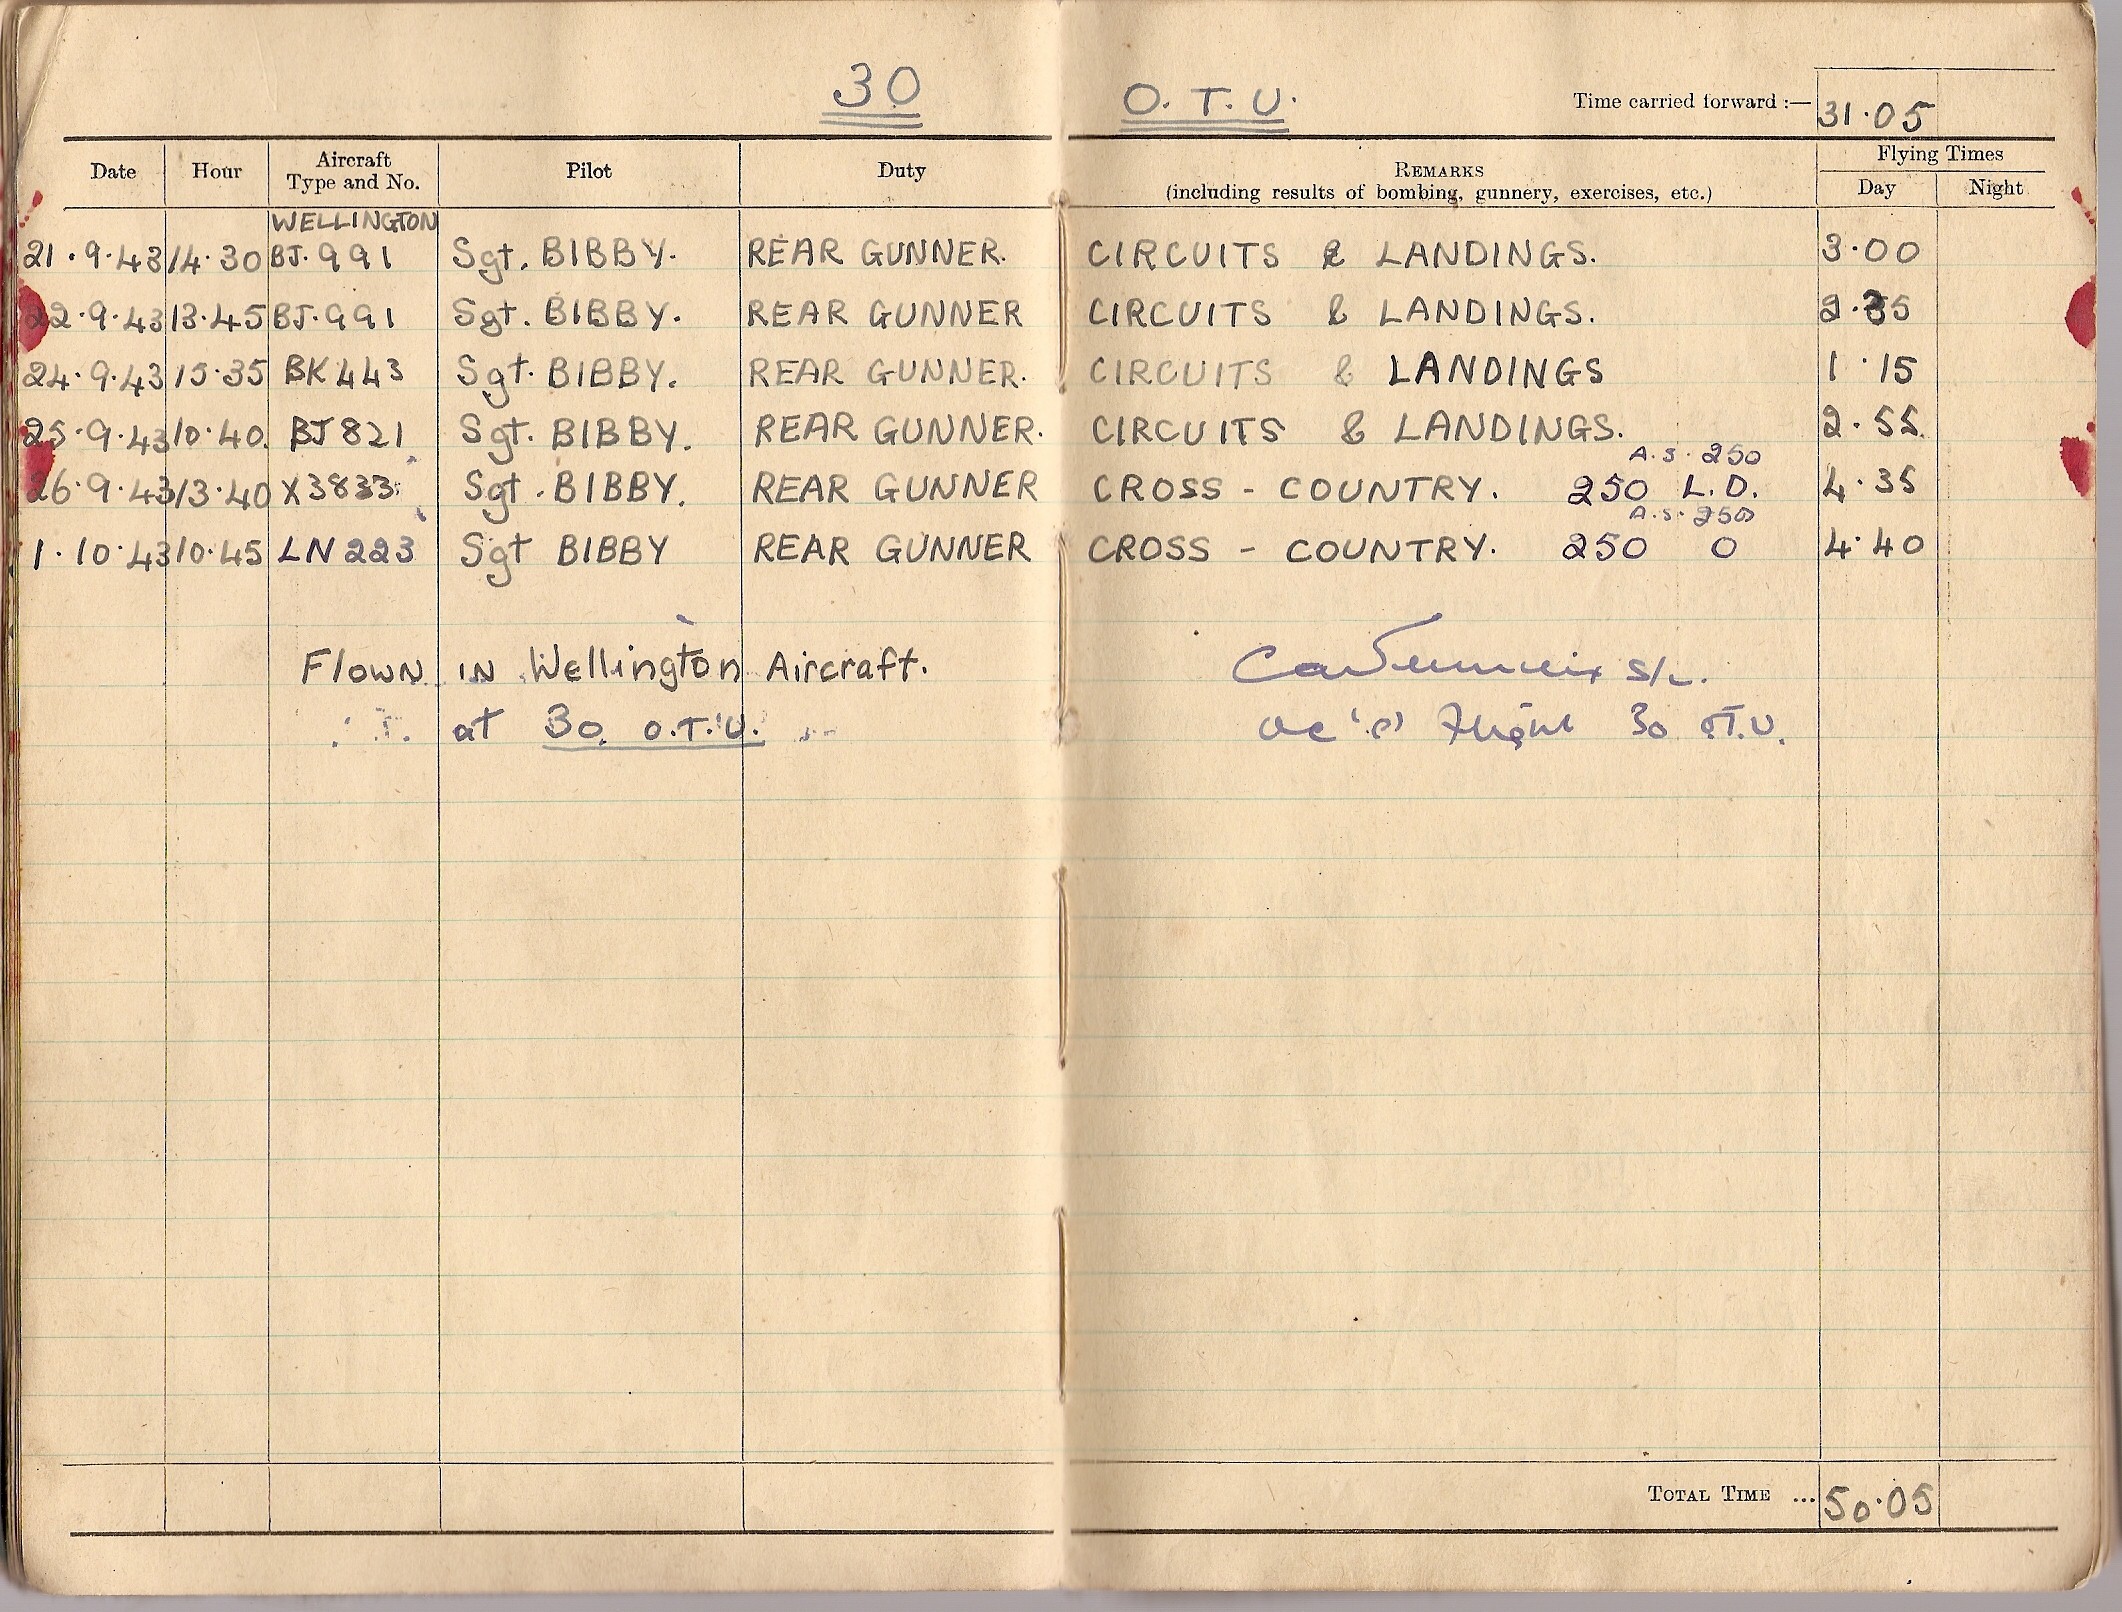 30 O. T. U. Time carried forward :— 31·05
Date Hour Aircraft Type and No. Pilot Duty REMARKS (including results of bombing, gunnery, exercises, etc.) Flying Times Day Night
WELLINGTON
21·9·43 14·30 BJ·991 Sgt. BIBBY. REAR GUNNER. CIRCUITS & LANDINGS. 3·00
22·9·43 13·45 BJ·991 Sgt. BIBBY. REAR GUNNER CIRCUITS & LANDINGS. 2·35
24·9·43 15·35 BK443 Sgt. BIBBY. REAR GUNNER. CIRCUITS & LANDINGS 1·15
25·9·43 10·40. BJ821 Sgt. BIBBY. REAR GUNNER. CIRCUITS & LANDINGS. 2·55
A.S. 250
26·9·43 13·40 X3833 Sgt. BIBBY. REAR GUNNER CROSS - COUNTRY. 250 L.D. 4·35
A.S. 250
1·10·43 10·45 LN223 Sgt BIBBY REAR GUNNER CROSS - COUNTRY. 250 0 4·40
Flown in Wellington Aircraft. S/L.
at 30 O.T.U. Flight 30 O.T.U.
TOTAL TIME ... 50·05